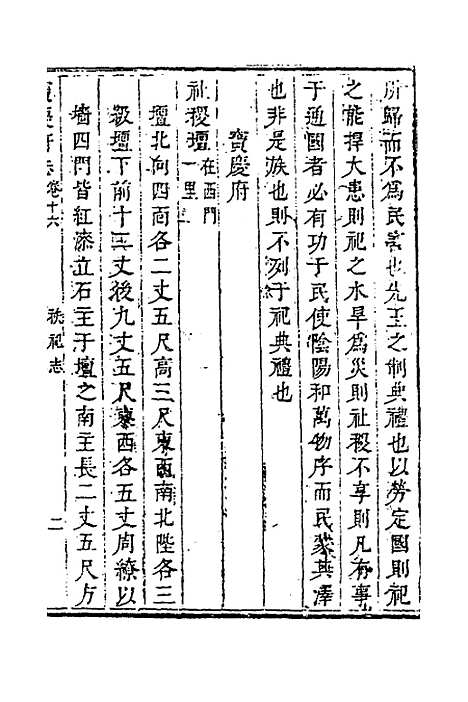 所歸而不為民害也先王之制典禮也以勞定國則祀
之能捍大患則祀之水旱為災則社稷不享則凡有事
于通國者必有功于民使陰陽和萬物序而民蒙其澤
也非是族也則不列于祀典禮也
寶慶府
社稷壇在西門一里
壇北向四面各二丈五尺高三尺東西南北陛各三
級壇下前十二丈後九丈五尺東西各五丈周繚以
墻四門皆紅漆立石主于壇之南主長二丈五尺方
寶慶府志卷十六 秩祀志 二